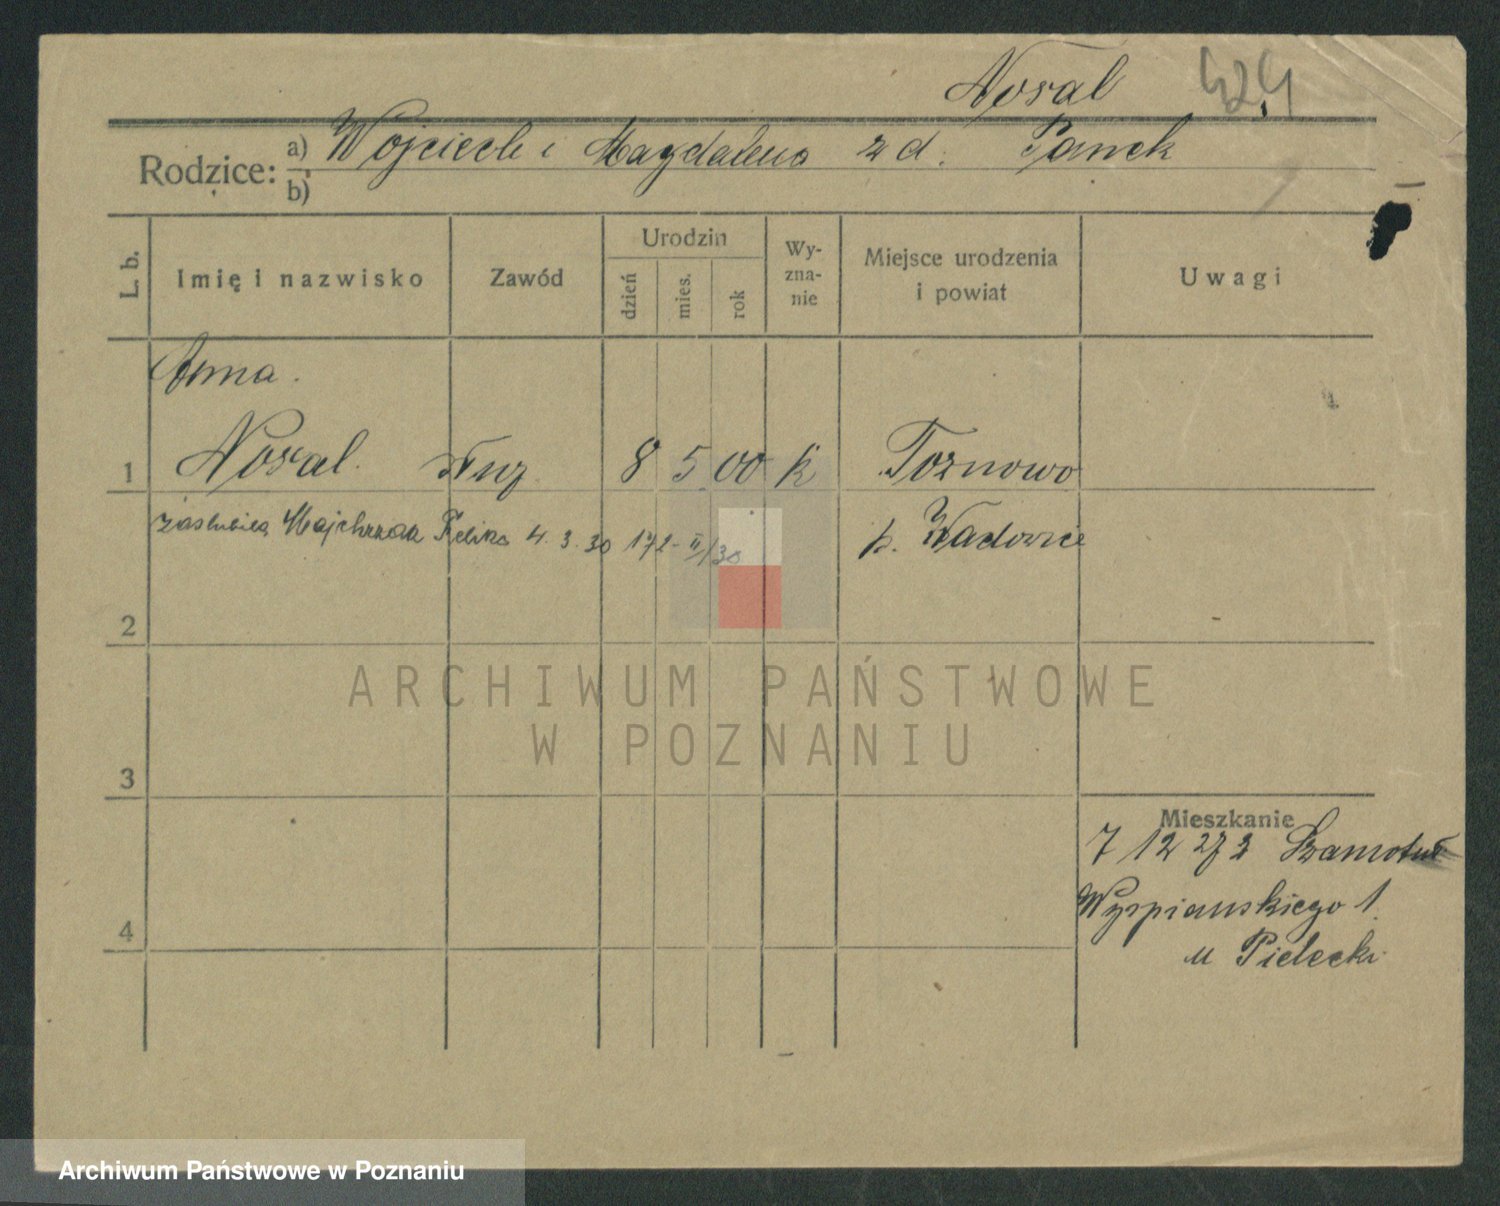 Nosal 424
Rodzice: a) Wojciech i Magdalena z d. Panek
b)
L. b. Imię i nazwisko Zawód Urodzin dzień mies. rok Wyznanie Miejsce urodzenia i powiat Uwagi
Anna.
1 Nosal. 8 5 00 k
zaślubiła Majchrzak Feliks 4.3.30 172-II/30 p. Wadowice
2
3
Mieszkanie
7 12 27
Wyspiańskiego 1.
4
u Pielecki
ARCHIWUM PAŃSTWOWE
W POZNANIU
Archiwum Państwowe w Poznaniu